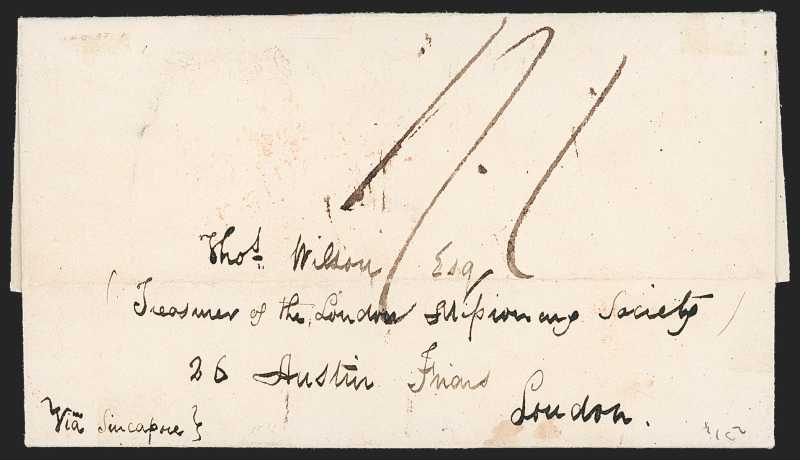 Thos. Wilson Esq
(Treasurer of the London Missionary Society)
26 Austin Friars
London.
Viä Sincapore}